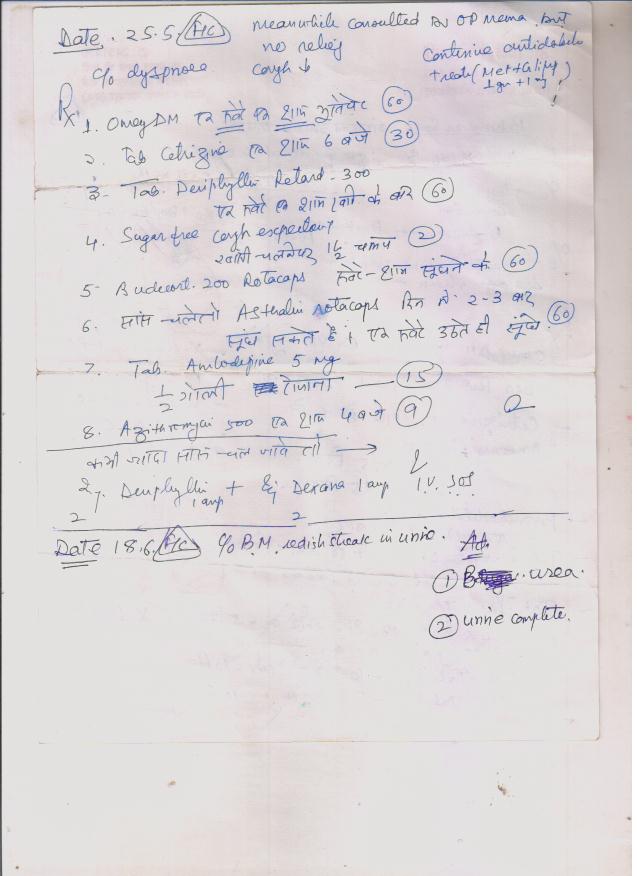 Date. 25.5. F/C
meanwhile consulted Dr OP but
no relief
c/o dyspnoea cough ↓
Continue antidiabetic
treat (Met + Glimy
1gm + 1mg)
Rx
1. Omez DM एक सवेरे एक शाम 60
2. Tab Cetrizine एक शाम 6 बजे 30
3. Tab. Deriphyllin Retard - 300
एक सवेरे एक शाम के बाद 60
4. Sugar free cough expectorant
1 1/2 चम्मच 2
5. Budecort 200 Rotacaps सवेरे - शाम सूंघने को 60
6. सांस चले तो Asthalin rotacaps दिन में 2-3 बार
सूंघ सकते हैं । एक सवेरे उठते ही सूंघे. 60
7. Tab. Amlodepine 5 mg
1/2 गोली रोजाना — 15
8. Azithromycin 500 एक शाम 4 बजे 9
कभी ज्यादा सांस चल जावे तो →
Deriphyllin 1 amp + Inj Dexona 1 amp I.V. SOS
2 2
Date 18.6. F/C c/o B.M. redish streak in urine.
① B. urea.
② urine complete.